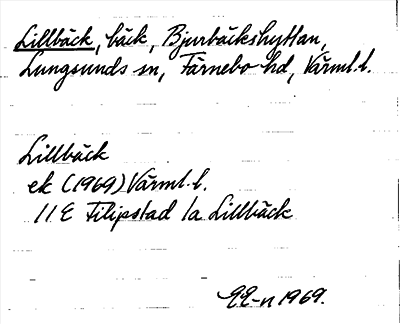 Lillbäck, bäck, Bjurbäckshyttan,
Lungsunds sn, Färnebo hd, Värml. l.
Lillbäck
ek (1969) Värml. l.
11 E Filipstad 1a Lillbäck
1969.